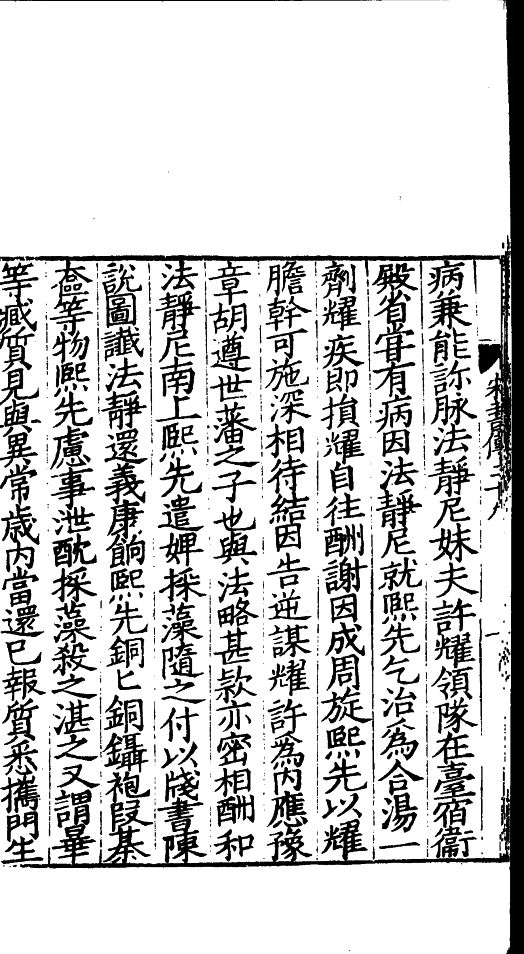 病兼能診脉法靜尼妹夫許耀領隊在臺宿衞
殿省甞有病因法靜尼就熙先乞治爲合湯一
劑耀疾即損耀自往酬謝因成周旋熙先以耀
膽幹可施深相待結因告逆謀耀許爲内應豫
章胡遵世藩之子也與法略甚款亦密相酬和
法靜尼南上熙先遣婢採藻隨之付以牋書陳
說圖讖法靜還義康餉熙先銅匕銅鑷袍段棊
奩等物熙先慮事泄酖採藻殺之湛之又謂曄
等臧質見與異常歳内當還已報質悉攜門生